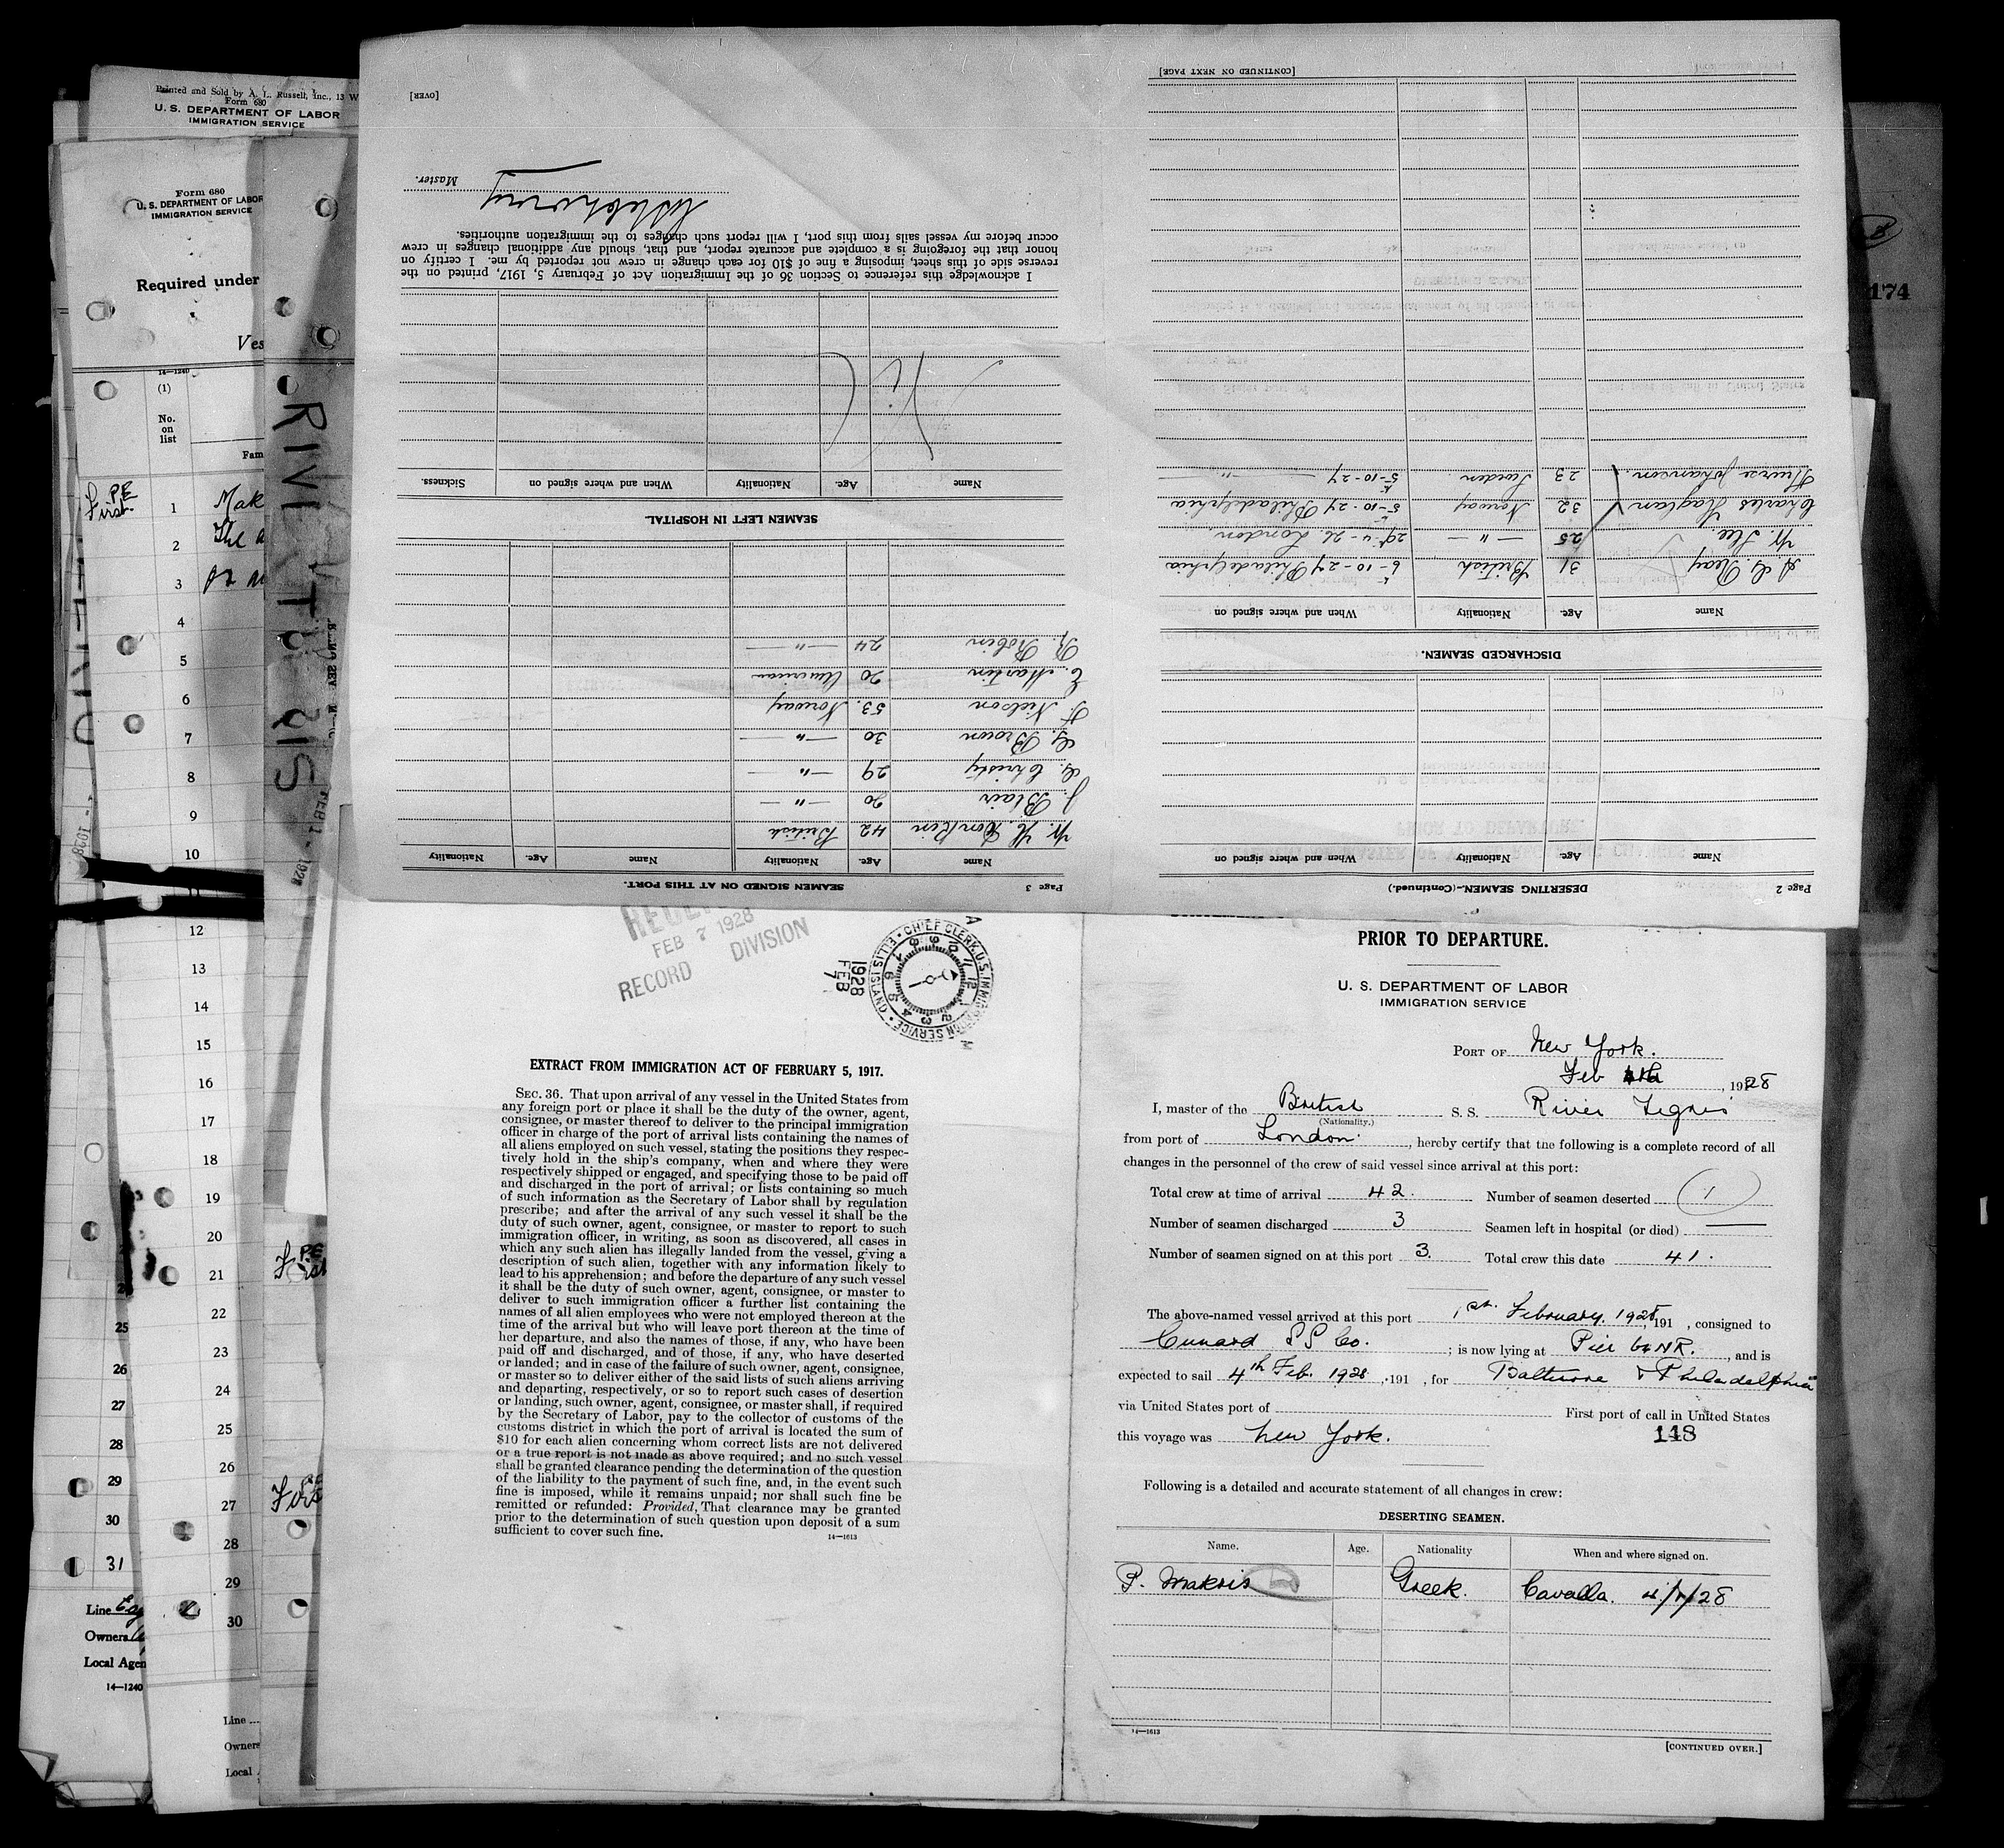 Printed and Sold by A. L. Russell, Inc., 13 W
Form 680
U. S. DEPARTMENT OF LABOR
IMMIGRATION SERVICE
Form 680
U. S. DEPARTMENT OF LABOR
IMMIGRATION SERVICE
Required under
Ves
14—1240
(1)
No.
on
list
Fam
P.E
First.
1 Mak
2 The
3
4
5
6
7
8
9
10
12
13
14
15
16
17
18
19
20
21
22
23
24
25
26
27
28
29
30
25
26
27
28
29
30
31
Line
Owners
Local Agen
14—1240
Line
Owners
Local
P.E
First
174
Page 2
DESERTING SEAMEN.—(Continued.)
Name Age. Nationality When and where signed on
DISCHARGED SEAMEN.
Name Age. Nationality When and where signed on
31 British 6-10-27 Philadelphia
25 — " — 29-4-26 London.
Charles 32 Norway 5-10-27 Philadelphia
Johanson. 23 Sweden. 5-10-27 — " —
[CONTINUED ON NEXT PAGE]
Page 3
SEAMEN SIGNED ON AT THIS PORT.
Name Age. Nationality Name Age. Nationality
W. H. 42 British
J. Blair 20 — " —
G. Christy 29 — " —
G. Brown 30 — " —
F. Nielson 53. Norway
E. Martin 20 American
R. Robin 24 — " —
SEAMEN LEFT IN HOSPITAL.
Name Age. Nationality When and where signed on Sickness.
Nil
I acknowledge this reference to Section 36 of the Immigration Act of February 5, 1917, printed on the
reverse side of this sheet, imposing a fine of $10 for each change in crew not reported by me. I certify on
honor that the foregoing is a complete and accurate report, and that, should any additional changes in crew
occur before my vessel sails from this port, I will report such changes to the immigration authorities.
Master.
[OVER]
FEB 7 1928
RECORD DIVISION
CHIEF CLERK U.S. IMMIGRATION SERVICE • ELLIS ISLAND
1928
FEB
7
EXTRACT FROM IMMIGRATION ACT OF FEBRUARY 5, 1917.
SEC. 36. That upon arrival of any vessel in the United States from
any foreign port or place it shall be the duty of the owner, agent,
consignee, or master thereof to deliver to the principal immigration
officer in charge of the port of arrival lists containing the names of
all aliens employed on such vessel, stating the positions they respec-
tively hold in the ship's company, when and where they were
respectively shipped or engaged, and specifying those to be paid off
and discharged in the port of arrival; or lists containing so much
of such information as the Secretary of Labor shall by regulation
prescribe; and after the arrival of any such vessel it shall be the
duty of such owner, agent, consignee, or master to report to such
immigration officer, in writing, as soon as discovered, all cases in
which any such alien has illegally landed from the vessel, giving a
description of such alien, together with any information likely to
lead to his apprehension; and before the departure of any such vessel
it shall be the duty of such owner, agent, consignee, or master to
deliver to such immigration officer a further list containing the
names of all alien employees who were not employed thereon at the
time of the arrival but who will leave port thereon at the time of
her departure, and also the names of those, if any, who have been
paid off and discharged, and of those, if any, who have deserted
or landed; and in case of the failure of such owner, agent, consignee,
or master so to deliver either of the said lists of such aliens arriving
and departing, respectively, or so to report such cases of desertion
or landing, such owner, agent, consignee, or master shall, if required
by the Secretary of Labor, pay to the collector of customs of the
customs district in which the port of arrival is located the sum of
$10 for each alien concerning whom correct lists are not delivered
or a true report is not made as above required; and no such vessel
shall be granted clearance pending the determination of the question
of the liability to the payment of such fine, and, in the event such
fine is imposed, while it remains unpaid; nor shall such fine be
remitted or refunded: Provided, That clearance may be granted
prior to the determination of such question upon deposit of a sum
sufficient to cover such fine.
14—1613
PRIOR TO DEPARTURE.
U. S. DEPARTMENT OF LABOR
IMMIGRATION SERVICE
PORT OF New York.
Feb 4th, 1928
I, master of the British S. S. River Tigris
(Nationality.)
from port of London., hereby certify that the following is a complete record of all
changes in the personnel of the crew of said vessel since arrival at this port:
Total crew at time of arrival 42. Number of seamen deserted 1
Number of seamen discharged 3 Seamen left in hospital (or died) —
Number of seamen signed on at this port 3. Total crew this date 41.
The above-named vessel arrived at this port 1st. February. 1928, 191 , consigned to
Cunard SS Co. ; is now lying at Pier 64 NR. , and is
expected to sail 4th Feb. 1928, 191 , for Baltimore & Philadelphia
via United States port of First port of call in United States
this voyage was New York. 118
Following is a detailed and accurate statement of all changes in crew:
DESERTING SEAMEN.
Name. Age. Nationality When and where signed on.
P. Makris Greek. Cavalla. 4/1/28
14—1613
[CONTINUED OVER.]